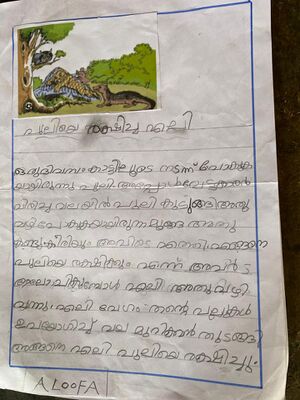 പുലിയെ രക്ഷിച്ച എലി
ഒരു ദിവസം കാട്ടിലൂടെ നടന്ന് പോകുക
യായിരുന്നു പുലി. അപ്പോൾ വേട്ടക്കാരൻ
വിരിച്ച വലയിൽ പുലി കുടുങ്ങി അതു
വഴി പോകുകയായിരുന്ന മൂങ്ങ അതു
കണ്ടു കീരിയും അവിടെ എത്തി എങ്ങനെ
പുലിയെ രക്ഷിക്കും എന്ന് അവർ
ആലോചിക്കുമ്പോൾ എലി അതുവഴി
വന്നു. എലി വേഗം തന്റെ പല്ലുകൾ
ഉപയോഗിച്ച് വല മുറിക്കാൻ തുടങ്ങി
അങ്ങനെ എലി പുലിയെ രക്ഷിച്ചു.
ALOOFA